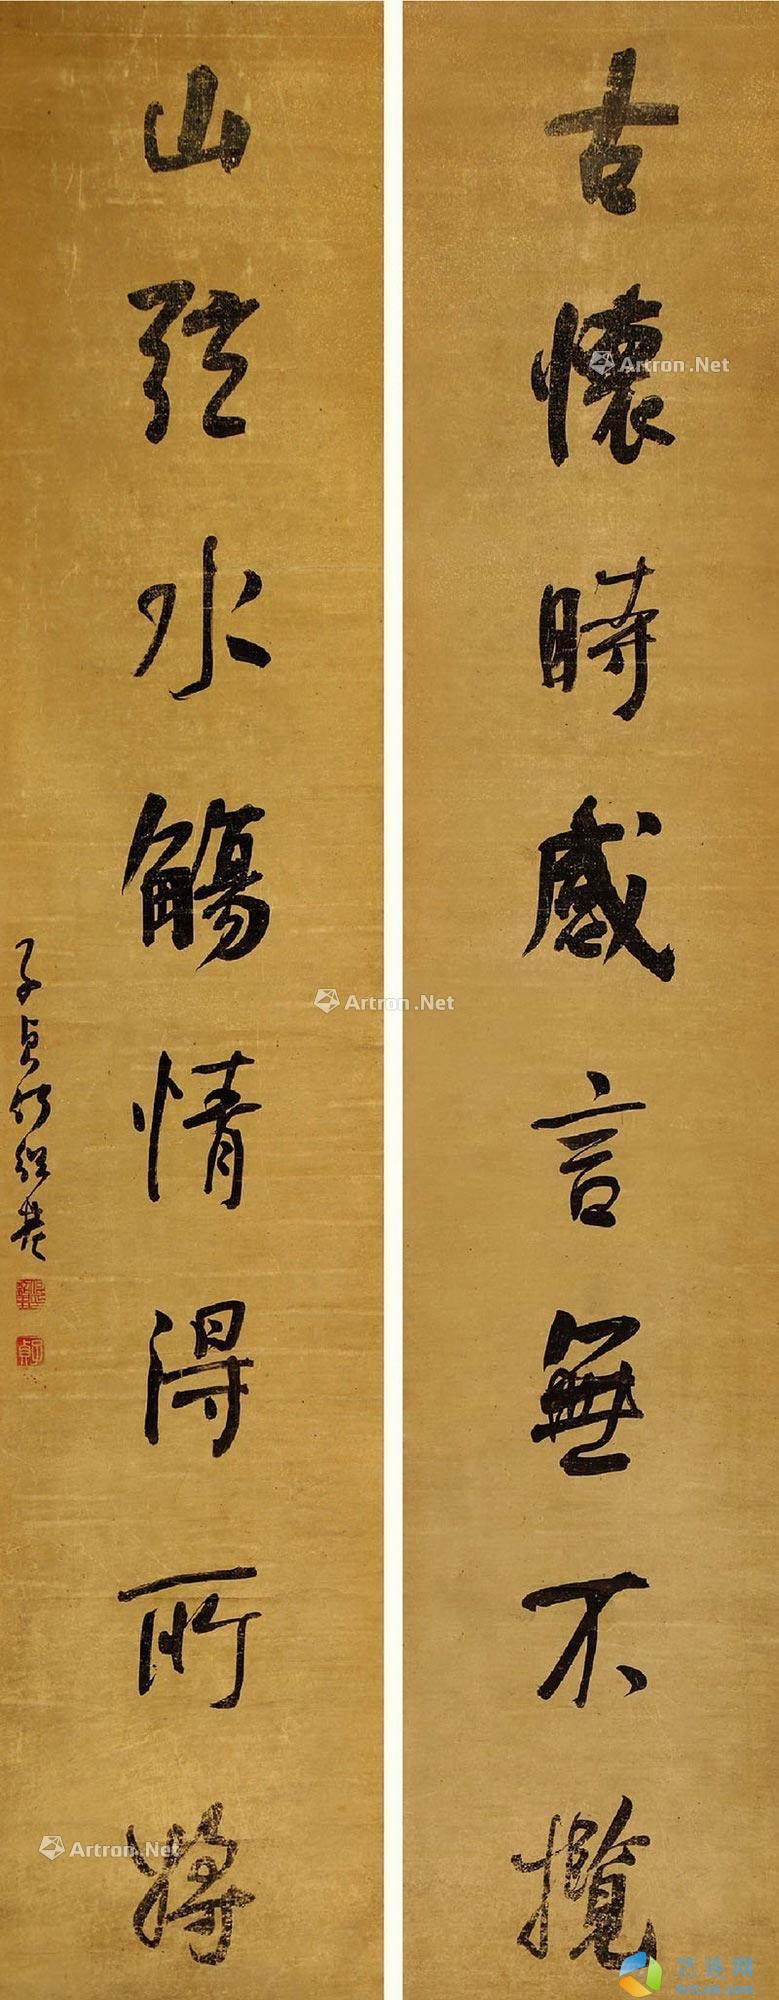 古懷時感言無不攬
山弦水觴情得所將
子貞何紹基
子貞
Artron.Net
Artron.Net
Artron.Net
艺连网
ArtLnk.com